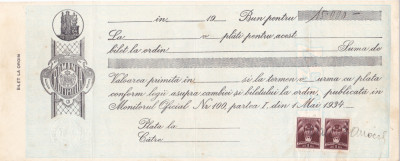 în 19 Bun pentru 15.000
La va plăti pentru acest
bilet la ordin Suma de
Valoarea primită în și la termen va urma cu plata
conform legii asupra cambiei și biletului la ordin, publicată în
Monitorul Oficial No 100, partea I, din 1 Mai 1934
Plata la
Către
BILET LA ORDIN